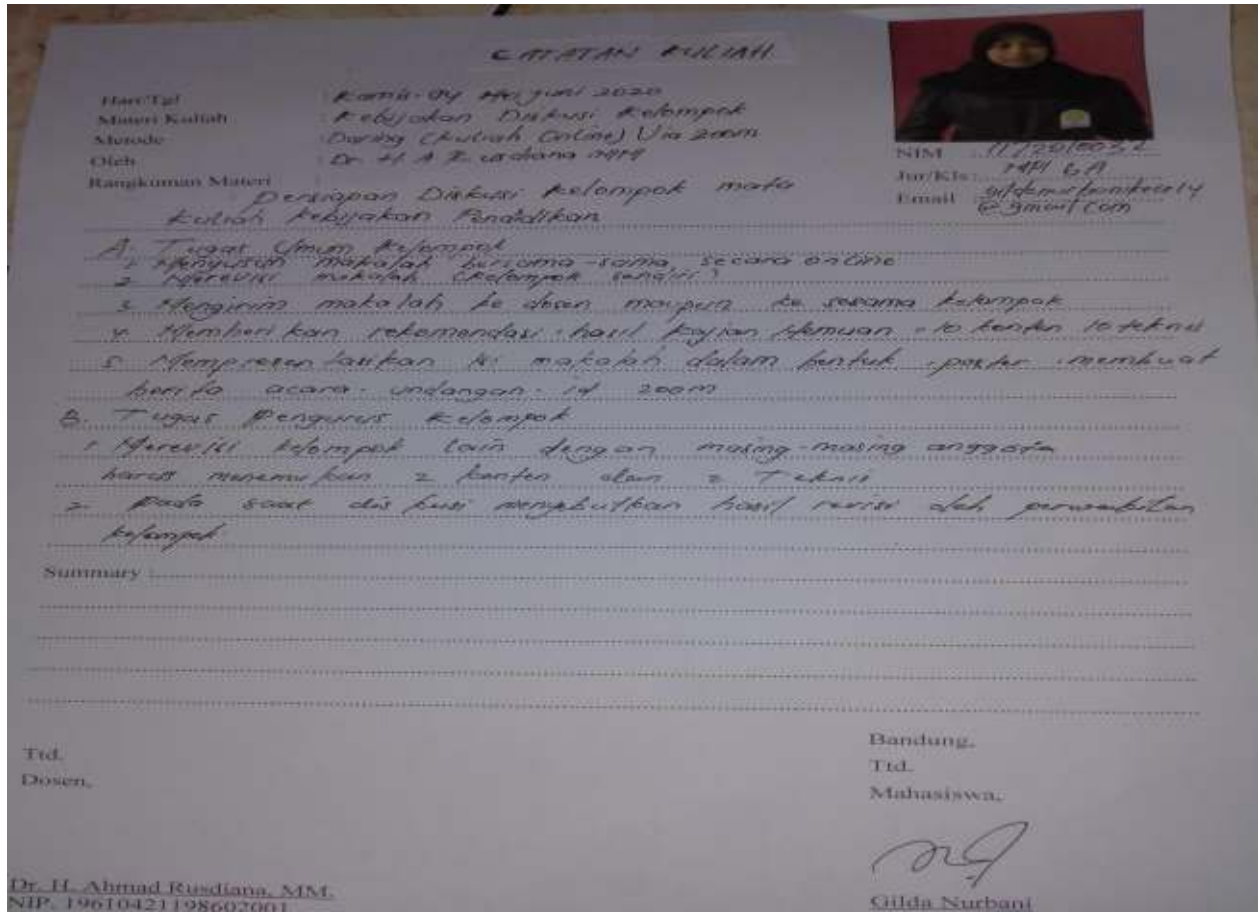 CATATAN KULIAH
Hari/Tgl : Kamis-04 Juni 2020
Materi Kuliah : Kebijakan Diskusi Kelompok
Metode : Daring (Kuliah Online) Via Zoom
Oleh : Dr. H. A Rusdiana MM
Rangkuman Materi :
NIM
Jur/Kls : MPI 6A
Email
@gmail.com
Persiapan Diskusi Kelompok mata
Kuliah Kebijakan Pendidikan
A. Tugas Umum Kelompok
1. Menyusun makalah bersama sama secara online
2. Merevisi makalah (Kelompok sendiri)
3. Mengirim makalah ke dosen maupun ke sesama kelompok
4. Memberi kan rekomendasi hasil kajian temuan 10 konten 10 teknis
5. Mempresentasikan isi makalah dalam bentuk poster membuat
berita acara undangan id zoom
B. Tugas Pengurus Kelompok
1. Merevisi kelompok lain dengan masing-masing anggota
harus menemukan 2 konten dan 2 Teknis
2. Pada saat diskusi menyebutkan hasil revisi oleh perwakilan
kelompok
Summary :
Ttd.
Dosen,
Dr. H. Ahmad Rusdiana, MM.
NIP. 19610421198602001
Bandung,
Ttd.
Mahasiswa,
Gilda Nurbani